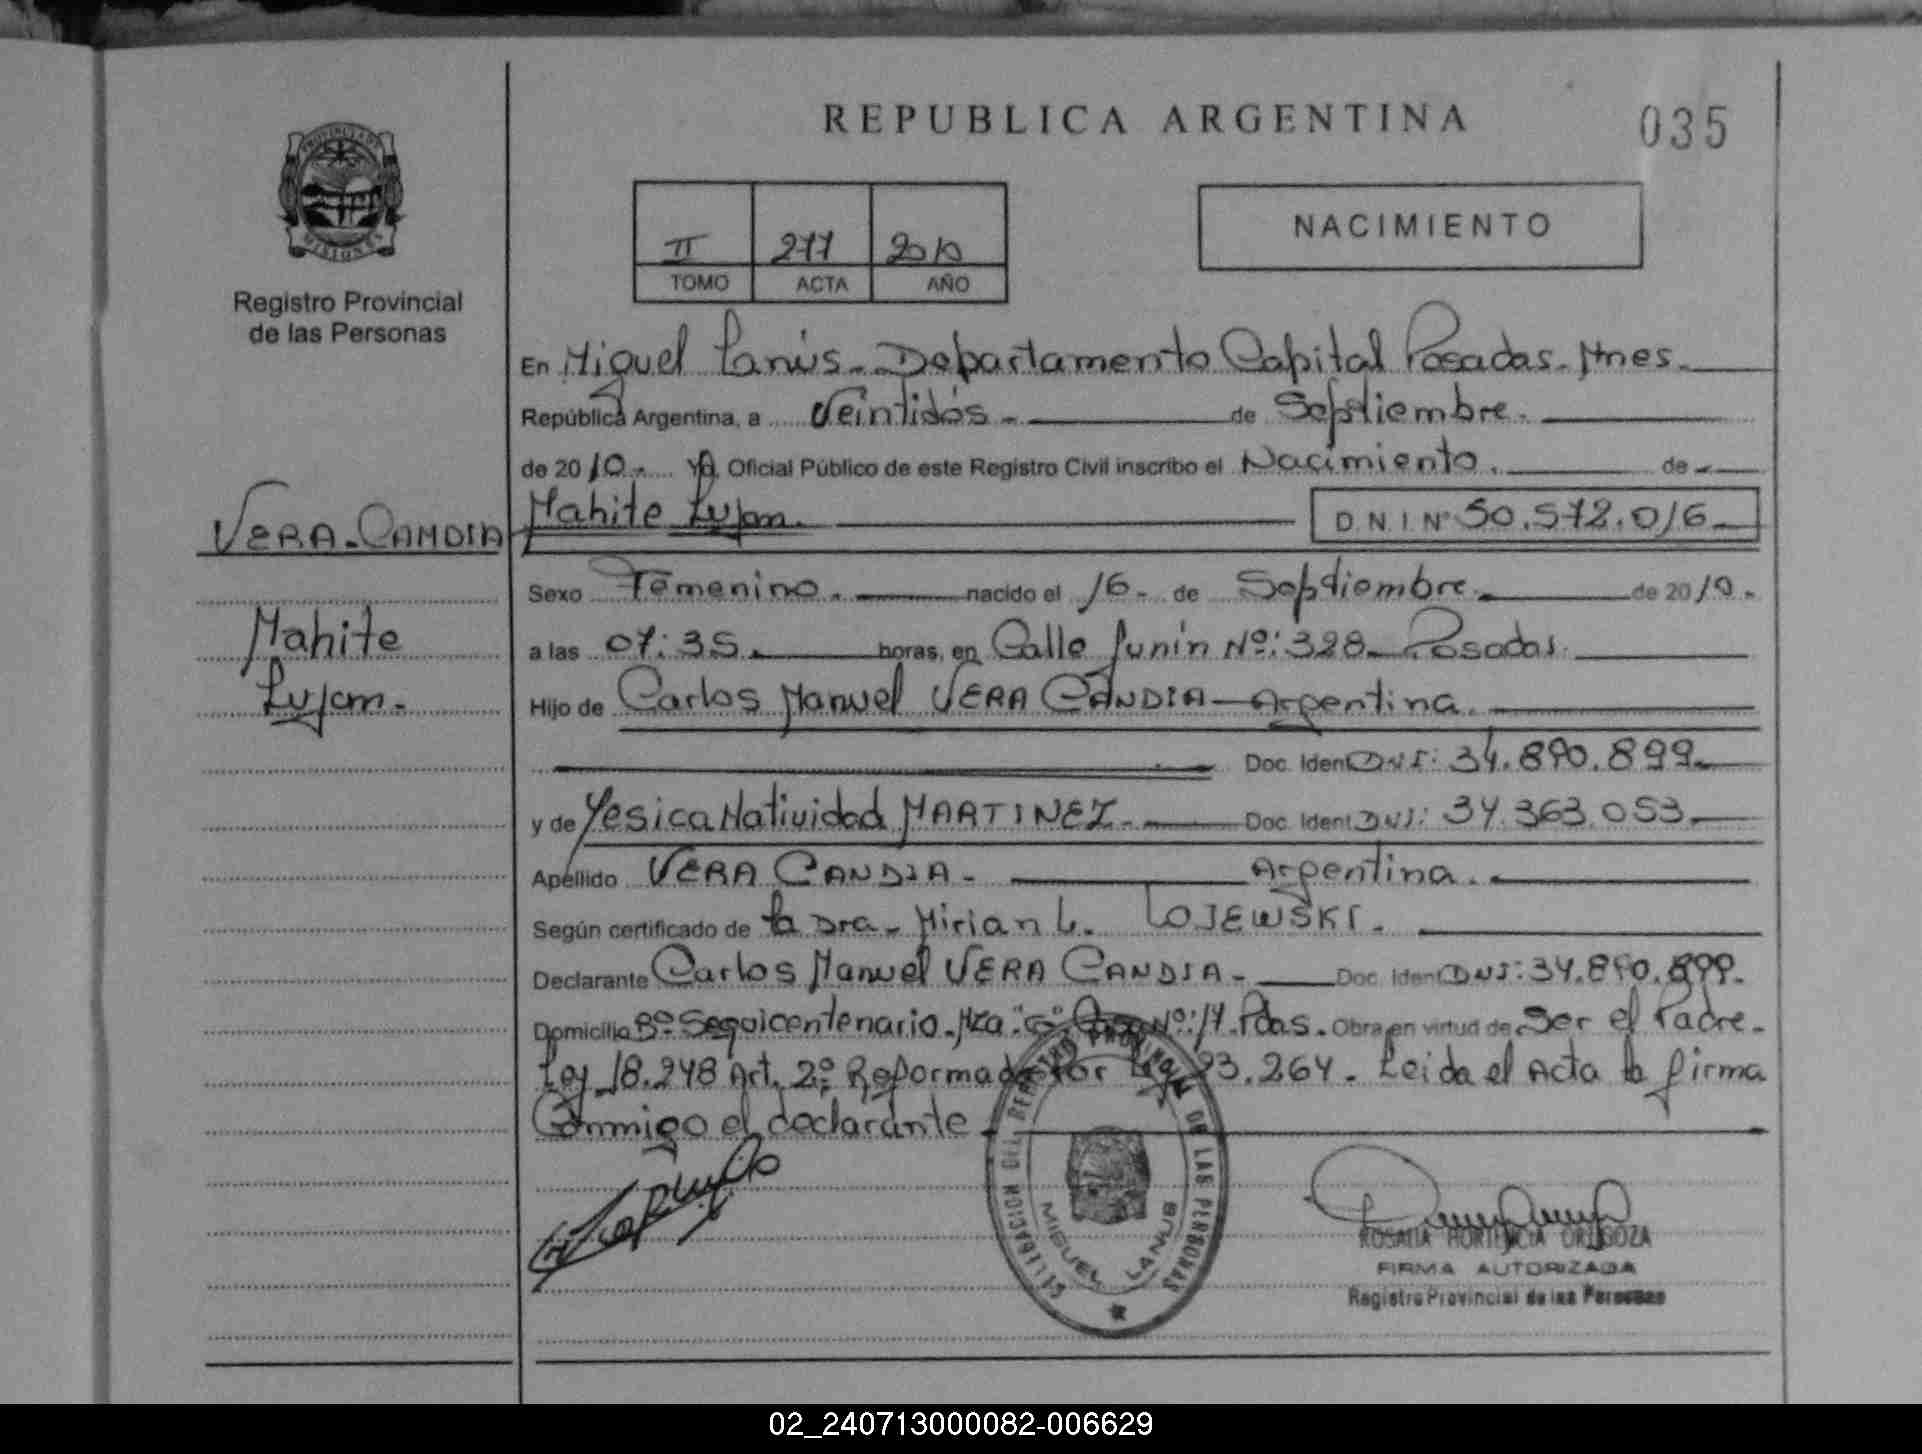 REPUBLICA ARGENTINA
035
PROVINCIA DE
MISIONES
Registro Provincial
de las Personas
II 277 2010
TOMO ACTA AÑO
NACIMIENTO
En Miguel Lanús - Departamento Capital Posadas - Mnes.
República Argentina, a Veintidós - de Septiembre.
de 2010 - Yo, Oficial Público de este Registro Civil inscribo el Nacimiento. de -
VERA-CANDIA
Mahite Lujan.
D.N.I. Nº 50.572.016-
Sexo Femenino. nacido el 16- de Septiembre. de 2010-
Mahite
Lujan.-
a las 07:35. horas, en Calle Junin Nº: 328- Posadas.
Hijo de Carlos Manuel VERA CANDIA - Argentina.
Doc. Ident DNI: 34.890.899-
y de Yesica Natividad MARTINEZ - Doc. Ident DNI: 34.363.053-
Apellido VERA CANDIA - Argentina.
Según certificado de la Dra- Mirian L. LOJEWSKI.
Declarante Carlos Manuel VERA CANDIA - Doc. Ident DNI: 34.890.899-
Domicilio Bº Sequicentenario - Mza "G" Casa Nº: 14. Pdas. Obra en virtud de Ser el Padre-
Ley 18.248 Art. 2º Reformada Por Ley 23.264 - Leida el Acta la firma
Conmigo el declarante
DELEGACION DEL REGISTRO PROVINCIAL DE LAS PERSONAS
MIGUEL LANUS
ROSALIA HORTENCIA ORTIGOZA
FIRMA AUTORIZADA
Registro Provincial de las Personas
02_240713000082-006629